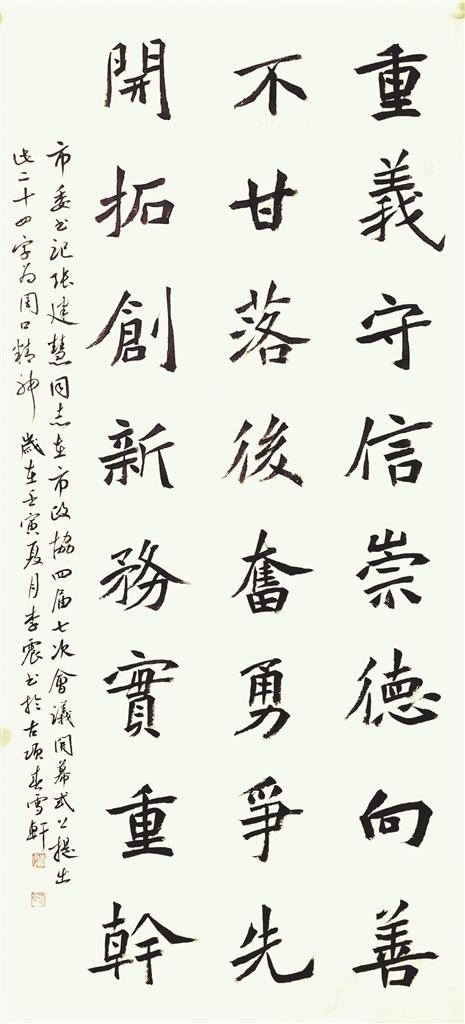 重義守信崇德向善
不甘落後奮勇爭先
開拓創新務實重幹
市委书记张建慧同志在市政協四届七次會議開幕式上提出
此二十四字为周口精神 歲在壬寅夏月李震书於古项春雪軒